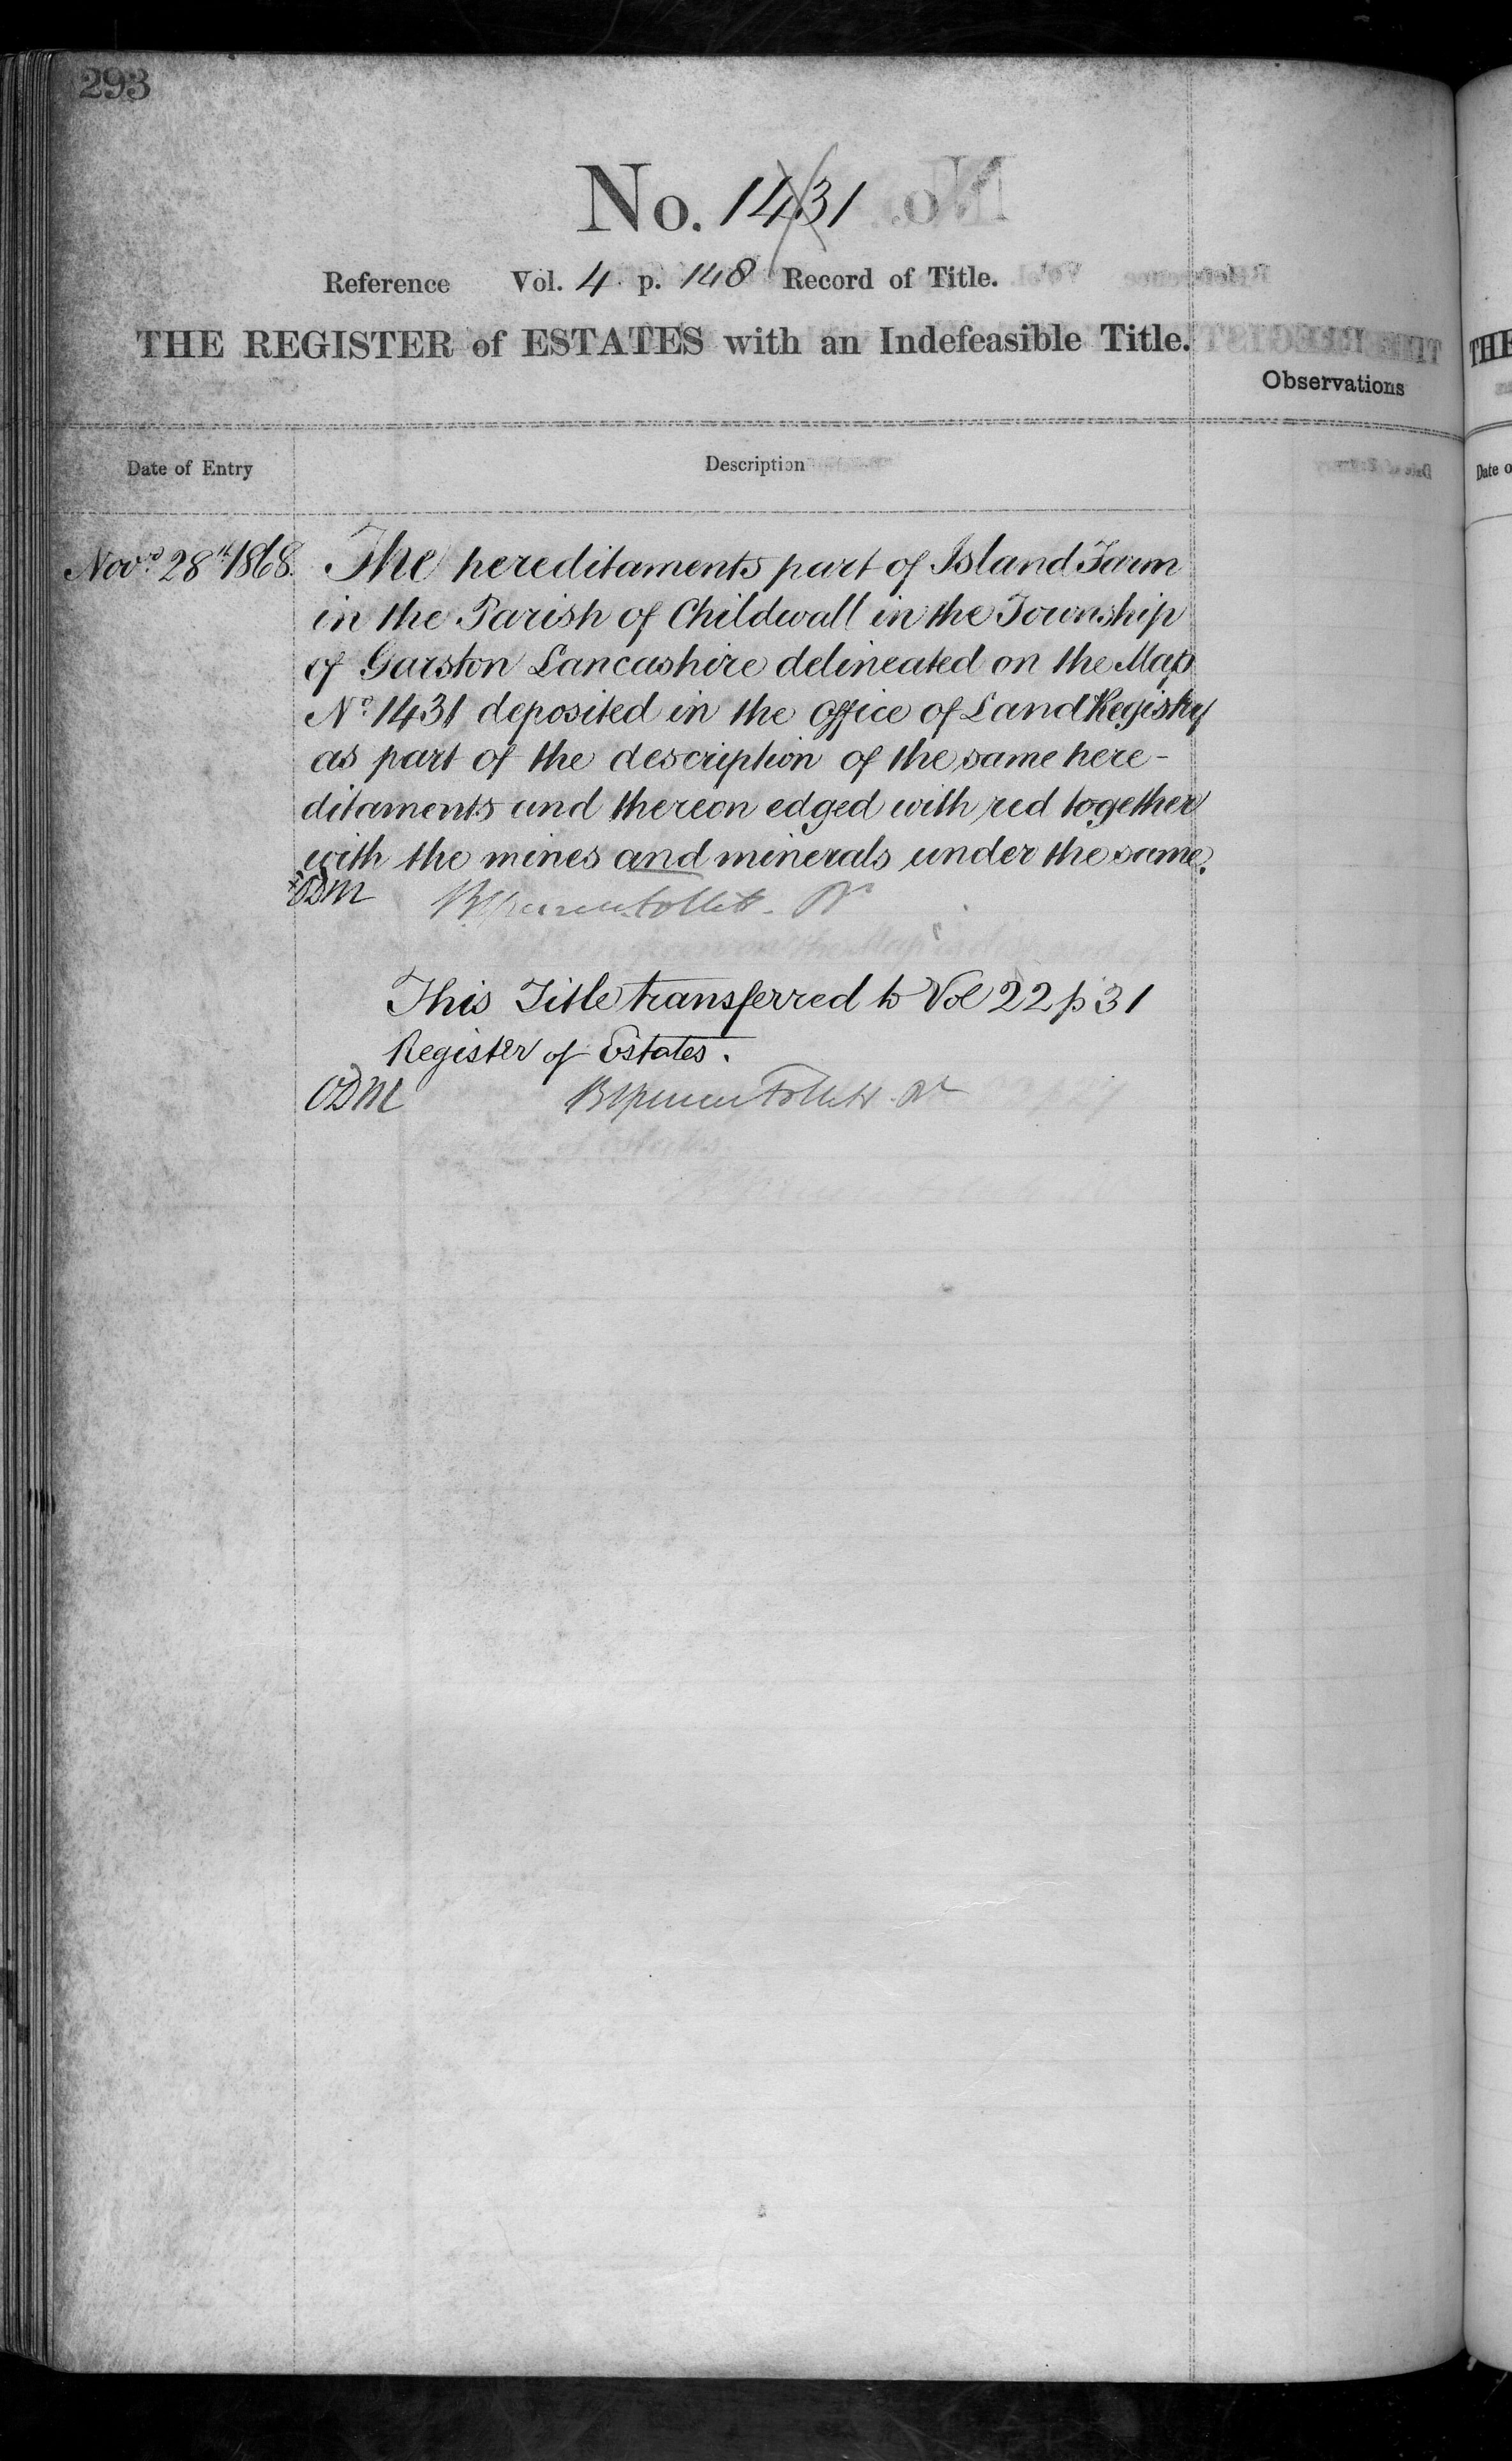 293
No. 1431
Reference Vol. 4 p. 148 Record of Title.
THE REGISTER of ESTATES with an Indefeasible Title.
Observations
Date of Entry
Description
Novr 28th 1868. The hereditaments part of Island Farm
in the Parish of Childwall in the Township
of Garston Lancashire delineated on the Map
No 1431 deposited in the Office of Land Registry
as part of the description of the same here-
ditaments and thereon edged with red together
with the mines and minerals under the same.
ODM BSpencer Follett. Rr
This Title transferred to Vol 22 p 31
Register of Estates.
ODM BSpencer Follett. Rr
THE
Date o